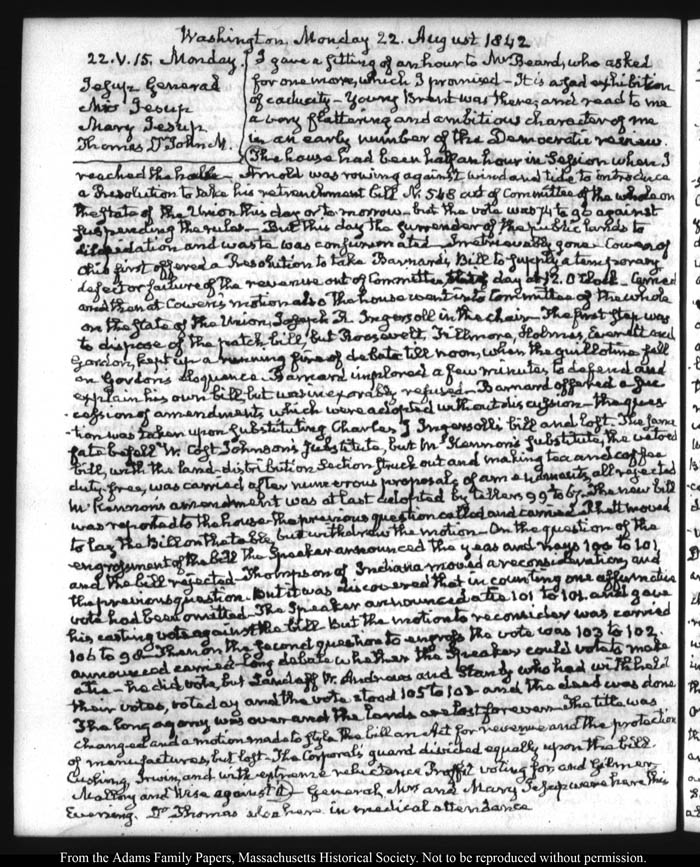 Washington Monday 22. August 1842
22. V. 15. Monday.
Jesup General
Mrs Jesup
Mary Jesup
Thomas Dr John M.
I gave a sitting of an hour to Mr Beard, who asked
for one more, which I promised – It is a sad exhibition
of caducity – Young Brent was there; and read to me
a very flattering and ambitious character of me
in an early number of the Democratic review.
The house had been half an hour in Session when I
reached the hall – Arnold was rowing against wind and tide to introduce
a Resolution to take his retrenchment bill N. 548 out of Committee of the whole on
the State of the Union this day or to-morrow, but the vote was 74 to 96 against
suspending the rules – But this day the surrender of the public lands to
dilapidation and waste was consummated – Irretrievably gone. Cowen of
Ohio first offered a Resolution to take Barnard's Bill to supply a temporary
defect or failure of the revenue out of Committee, this day at 12. O'Clock – Carried
and then at Cowen's motion also the house went into Committee of the whole
on the State of the Union, Joseph R. Ingersoll in the chair. The first step was
to dispose of the patch bill, but Roosevelt, Fillmore, Holmes, Everett and
Gordon, kept up a running fire of debate till noon, when the guillotine fell
on Gordon's eloquence. Barnard implored a few minutes, to defend and
explain his own bill but was inexorably refused – Barnard offered a suc
-cession of amendments, which were adopted without discussion – the ques
-tion was taken upon substituting Charles J. Ingersoll's bill and lost. The same
fate befell W. Cost Johnson's Substitute, but McKennan's substitute, the vetoed
bill, with the land-distribution Section struck out and making tea and coffee
duty-free, was carried after numerous proposals of amendments, all rejected
McKennan's amendment was at last adopted by tellers 99 to 67. The new bill
was reported to the house the previous question called and carried. moved
to lay the Bill on the table but withdrew the motion – On the question of the
engrossment of the bill the Speaker announced the yeas and nays 100 to 101
and the bill rejected – Thompson of Indiana moved a reconsideration, and
the previous question. But it was discovered that in counting one affirmative
vote had been omitted – The Speaker announced a tie 101 to 101 and gave
his casting vote against the bill. But the motion to reconsider was carried
106 to 98 – Then on the second question to engross the vote was 103 to 102.
announced carried – long debate whether the Speaker could vote to make
a tie – he did vote, but Landaff W. Andrews and Stanly who had withheld
their votes, voted ay and the vote stood 105 to 103 – and the deed was done
The long agony was over and the lands are lost forever – The title was
changed and a motion made to style the bill an Act for revenue and the protection
of manufactures, but lost – The Corporal's guard divided equally upon the bill
Cushing, Irwin, and with extreme reluctance Proffit voting for, and Gilmer
Mallory and Wise against it – General, Mrs and Mary Jesup were here this
Evening. Dr Thomas also here in medical attendance
From the Adams Family Papers, Massachusetts Historical Society. Not to be reproduced without permission.